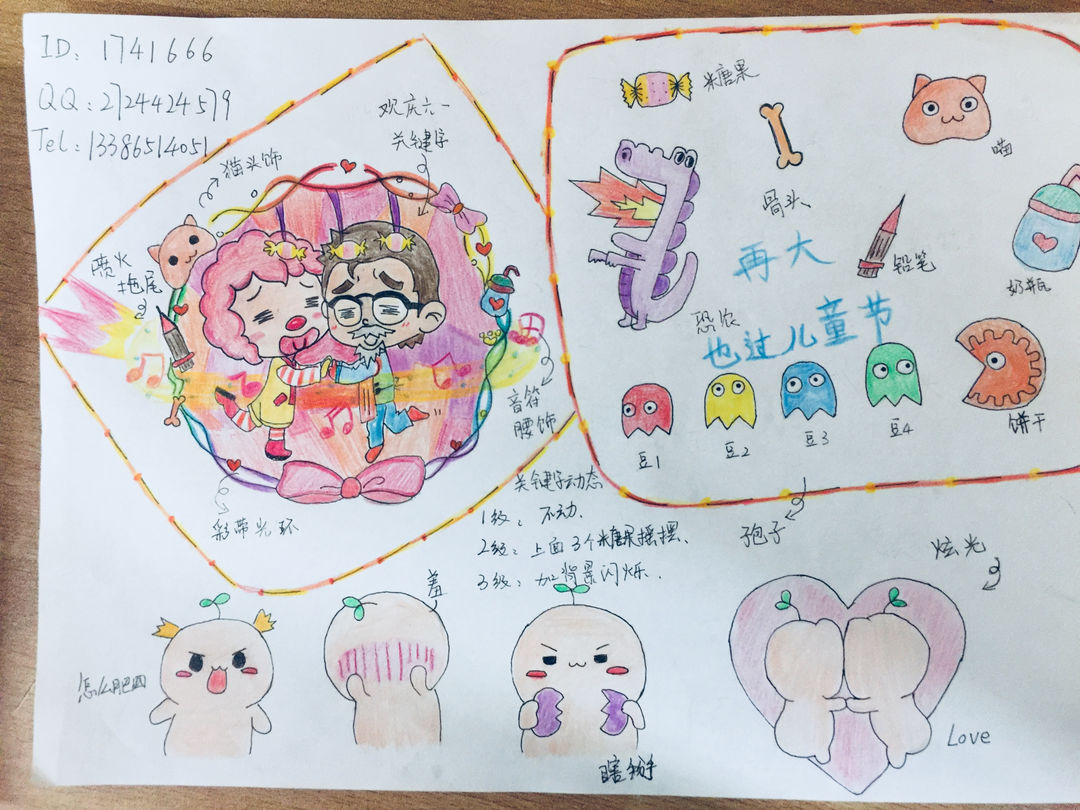 ID: 1741666
QQ: 2724424579
Tel: 13386514051
猫头饰
欢庆六一
关键字
喷火
拖尾
音符
腰饰
彩带光环
关键字动态
1级: 不动.
2级: 上面3个糖果摇摆.
3级: 加背景闪烁.
糖果
骨头
喵
铅笔
奶瓶
恐龙
再大
也过儿童节
豆1
豆2
豆3
豆4
饼干
孢子
炫光
怎么肥四
羞
瞎掰
Love